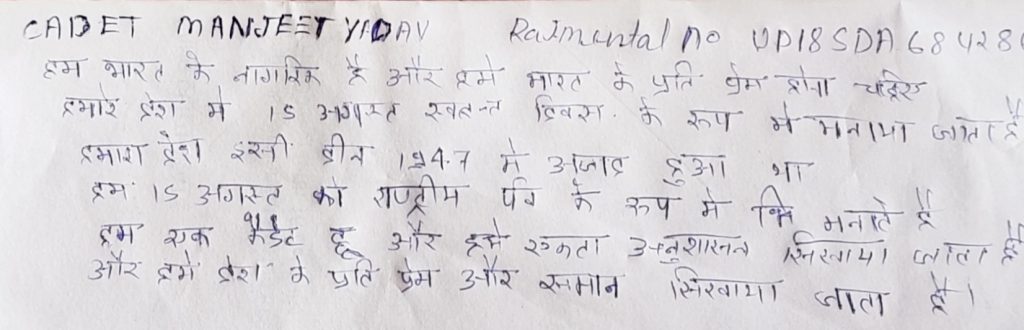 CADET MANJEET YADAV Rajmental no UP18SDA 684286
हम भारत के नागरिक है और हमे भारत के प्रति प्रेम होना चहिए
हमारे देश मे 15 अगस्त स्वतन्त दिवस के रूप मे मनाया जाता है
हमारा देश इसी दीन 1947 मे अजाद हुआ था
हम 15 अगस्त को राष्ट्रीम पर्व के रूप मे मनाते है
हम एक कैडेट हू और हमे एकता अनुशासन सिखाया जाता है
और हमे देश के प्रति प्रेम और समान सिखाया जाता है।